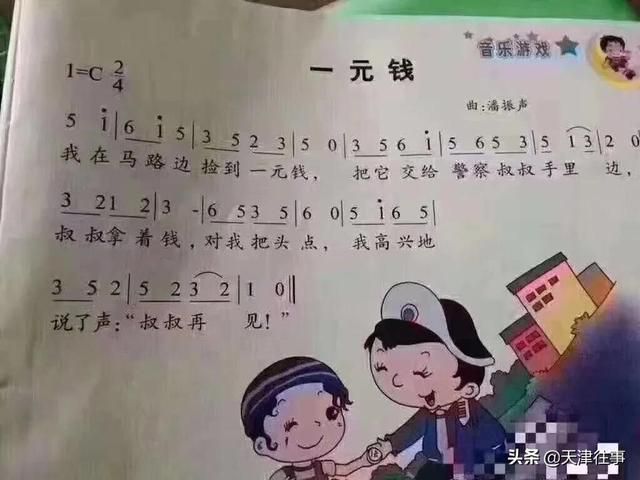 音乐游戏
1=C 2/4
一元钱
曲:潘振声
5 i|6 i 5|3 5 2 3|5 0|3 5 6 i|5 6 5 3|5 1 3|2 0
我在马路边捡到一元钱， 把它交给警察叔叔手里 边，
3 2 1 1 2|3 -|6 5 3 5|6 0|5 i 6 5|
叔叔拿着钱，对我把头点， 我高兴地
3 5 2|5 2 3 2|1 0‖
说了声:“叔叔再 见!”
头条 @天津往事